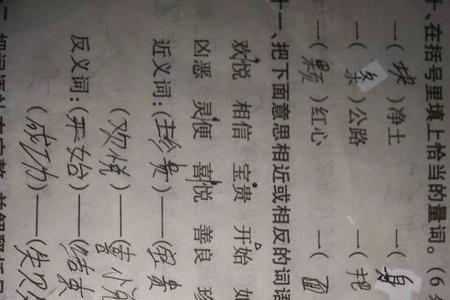 、在括号里填上恰当的量词。(6
一(块)净土 一(身
一(条)公路 一(把
一(颗)红心 一(面
十一、把下面意思相近或相反的词语
欢悦 相信 宝贵 开始 如
凶恶 灵便 喜悦 善良 珍
近义词:(珍贵)——(宝贵
(欢悦)——(
反义词:(开始)——(结束
(成功)——(失